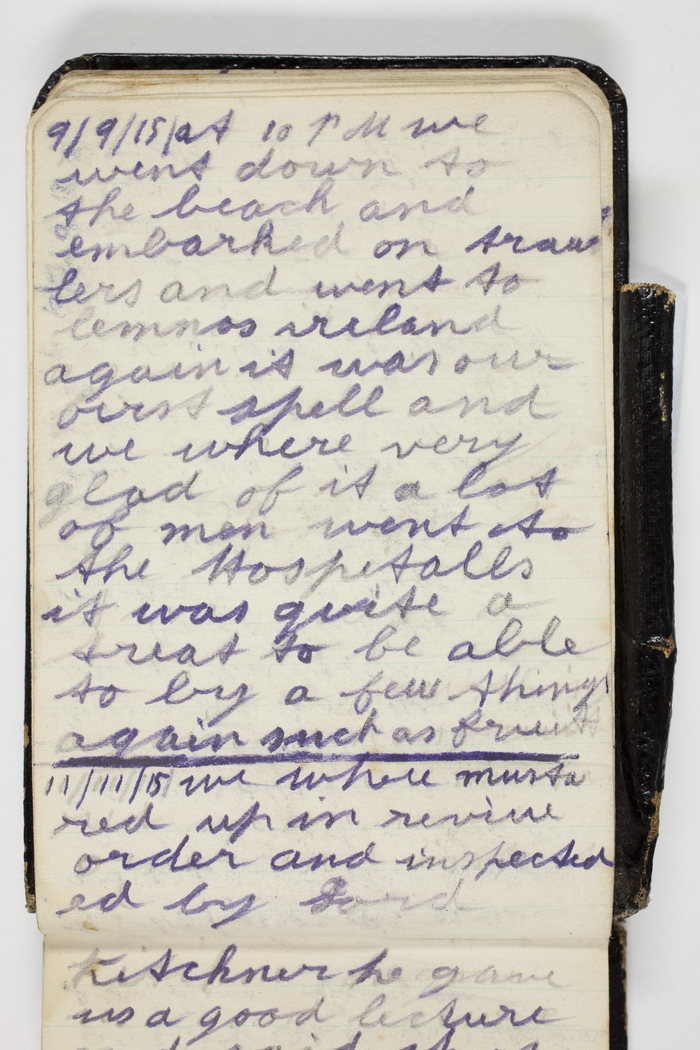 9/9/15/at 10 P M we
went down to
the beach and
embarked on traw
lers and went to
lemnos ireland
again it was our
birst spell and
we where very
glad of it a lot
of men went to
the Hospetalls
it was quite a
treat to be able
to by a few things
again such as fruit
11/11/15/ we where musta
red up in reviue
order and inspected
ed by Lord
Kitschner he gave
us a good lecture
and said